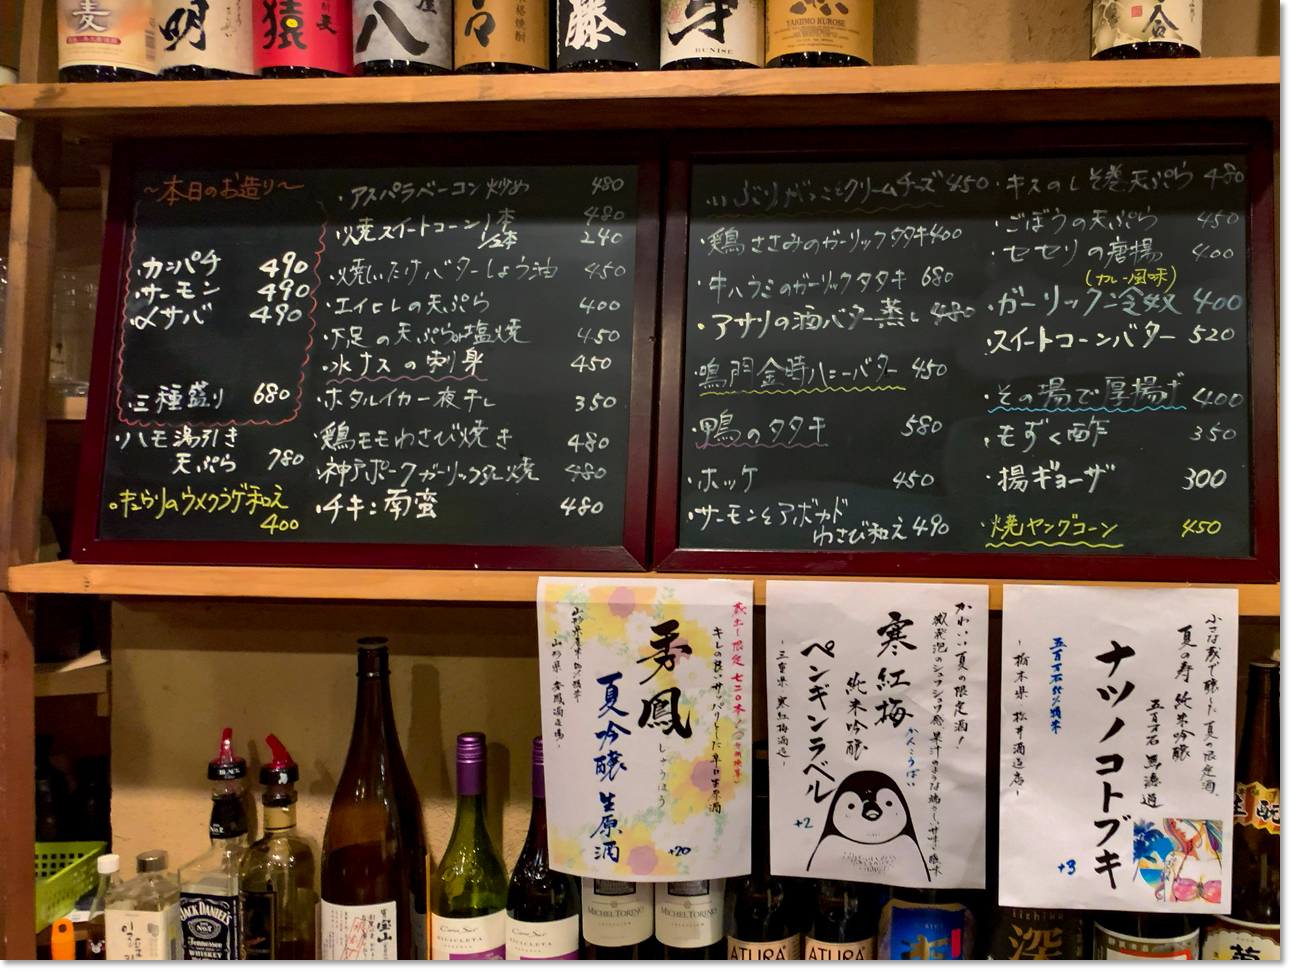 麦
明
猿
八
藤
RUNISE
YAKIIMO KUROSE
～本日のお造り～
カンパチ 490
サーモン 490
〆サバ 490
三種盛り 680
・ハモ湯引き
天ぷら 780
・きゅうりのウメクラゲ和え
400
・アスパラベーコン炒め 480
・焼スイートコーン 1本 480
1/2本 240
・焼しいたけバターしょう油 450
・エイヒレの天ぷら 400
・下足の天ぷらor塩焼 450
・水ナスの刺身 450
・ホタルイカ一夜干し 350
・鶏モモわさび焼き 480
・神戸ポークガーリック 焼 480
・チキン南蛮 480
・いぶりがっことクリームチーズ 450
・鶏ささみのガーリックタタキ 400
・牛ハラミのガーリックタタキ 680
・アサリの酒バター蒸し 480
・鳴門金時ハニーバター 450
・鴨のタタキ 580
・ホッケ 450
・サーモンとアボカド
わさび和え 490
・キスのしそ巻天ぷら 480
・ごぼうの天ぷら 450
・セセリの唐揚 400
(カレー風味)
・ガーリック冷奴 400
・スイートコーンバター 520
・その場で厚揚げ 400
・モずく酢 350
・揚ギョーザ 300
・焼ヤングコーン 450
蔵出し限定 七二〇本
キレの良いサッパリとした辛口生原酒
秀鳳
しゅうほう
夏吟醸 生原酒
～山形県 秀鳳酒造場～
+20
かわいい夏の限定酒！
寒紅梅
かんこうばい
純米吟醸
ペンギンラベル
～三重県 寒紅梅酒造～
+2
小さな蔵で醸した夏の限定酒
夏の寿 純米吟醸
五百万石 無濾過
ナツノコトブキ
五百万石
～栃木県 松井酒造店～
+3
BLACK
No.7
JACK DANIEL'S
Old No.7
Tennessee
WHISKEY
宝山
Cono Sur
BICICLETA
Cono Sur
BICICLETA
MICHEL TORINO
MICHEL TORINO
ATURA
ATURA
深